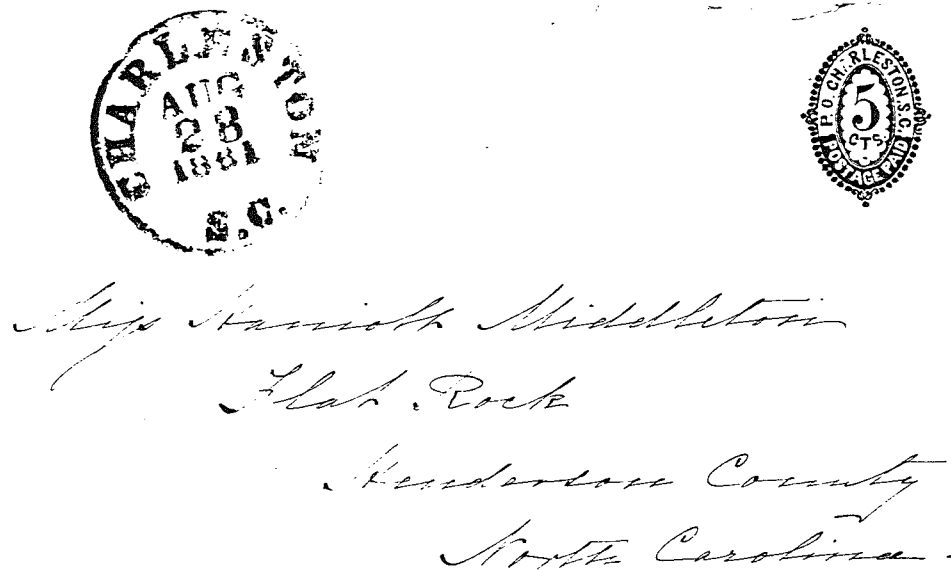 CHARLESTON
AUG
23
1861
S.C.
P.O. CHARLESTON. S.C.
5
CTS.
POSTAGE PAID
Miss Harriott Middleton
Flat Rock
Henderson County
North Carolina.